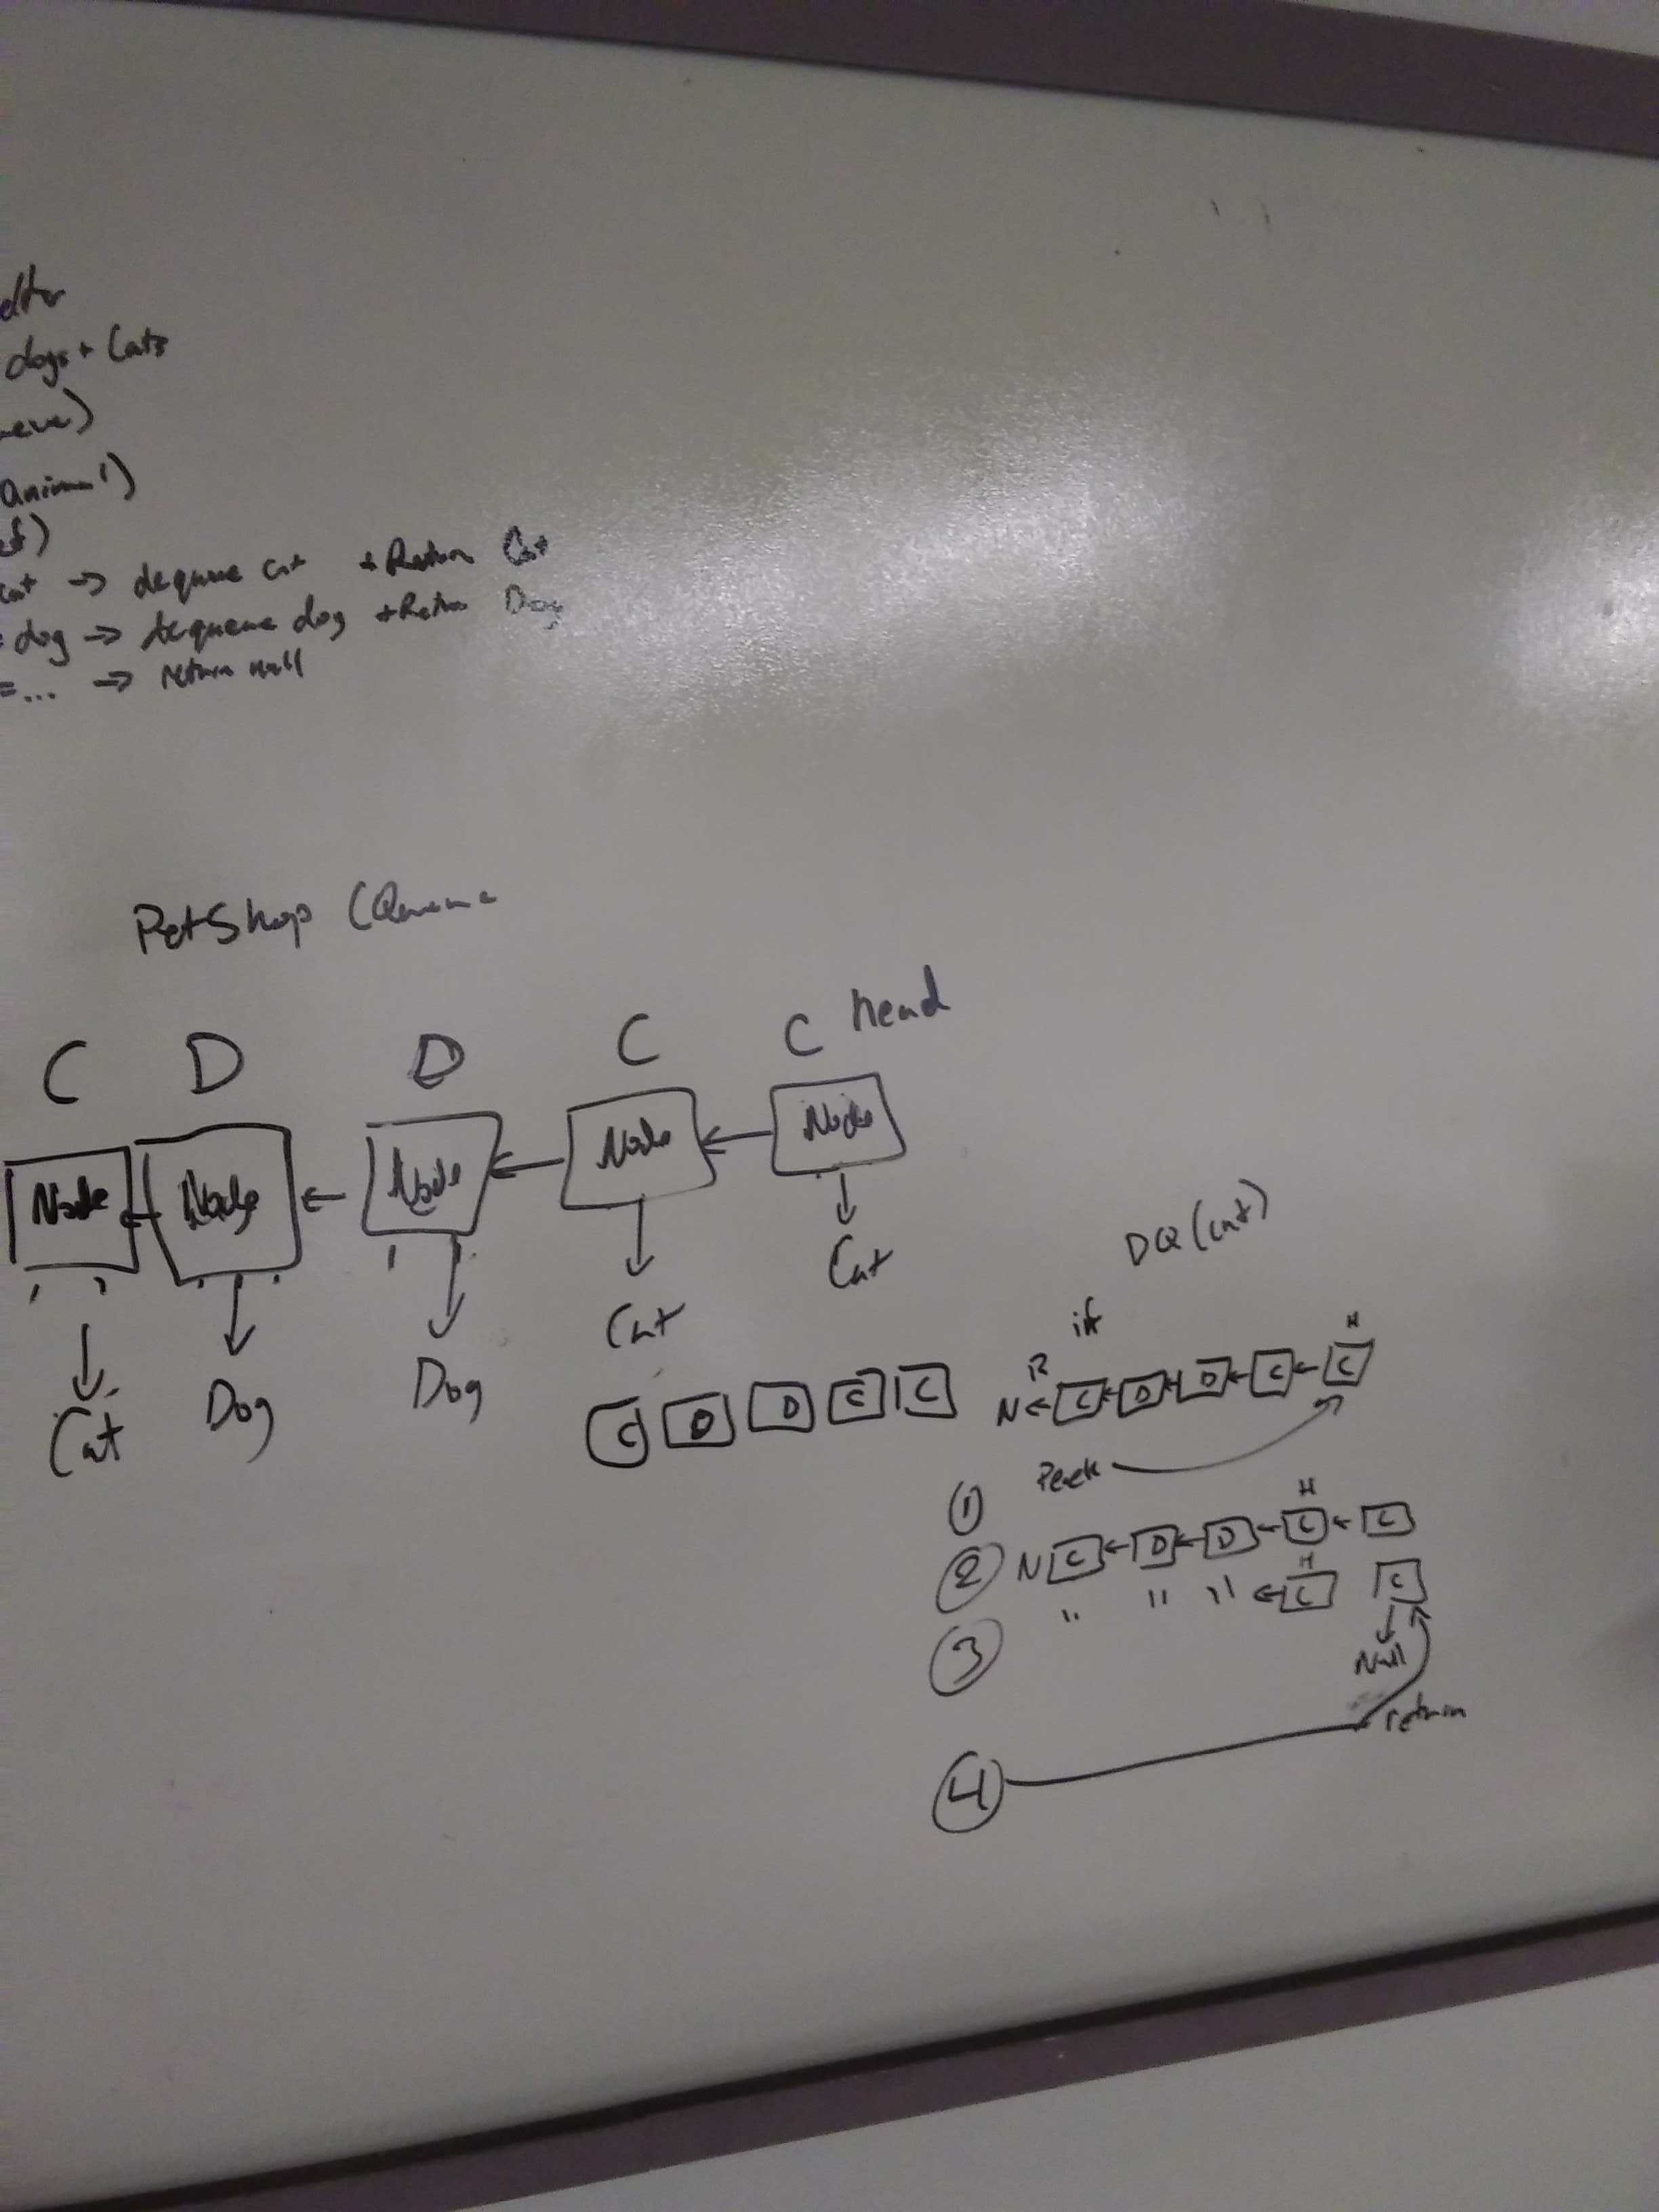 dogs + Cats
Cat → dequeue cat + Return Cat
= dog → dequeue dog + Return Dog
= ... → return null
PetShop (Queue
C D D C C head
Node ← Node ← Node ← Node ← Node
Cat Dog Dog Cat Cat
C D D C C
DQ(cat)
if
R H
N ← C ← D ← D ← C ← C
Peek
①
H
② N C ← D ← D ← C ← C
H
" " " ← C C
③
Null
return
④